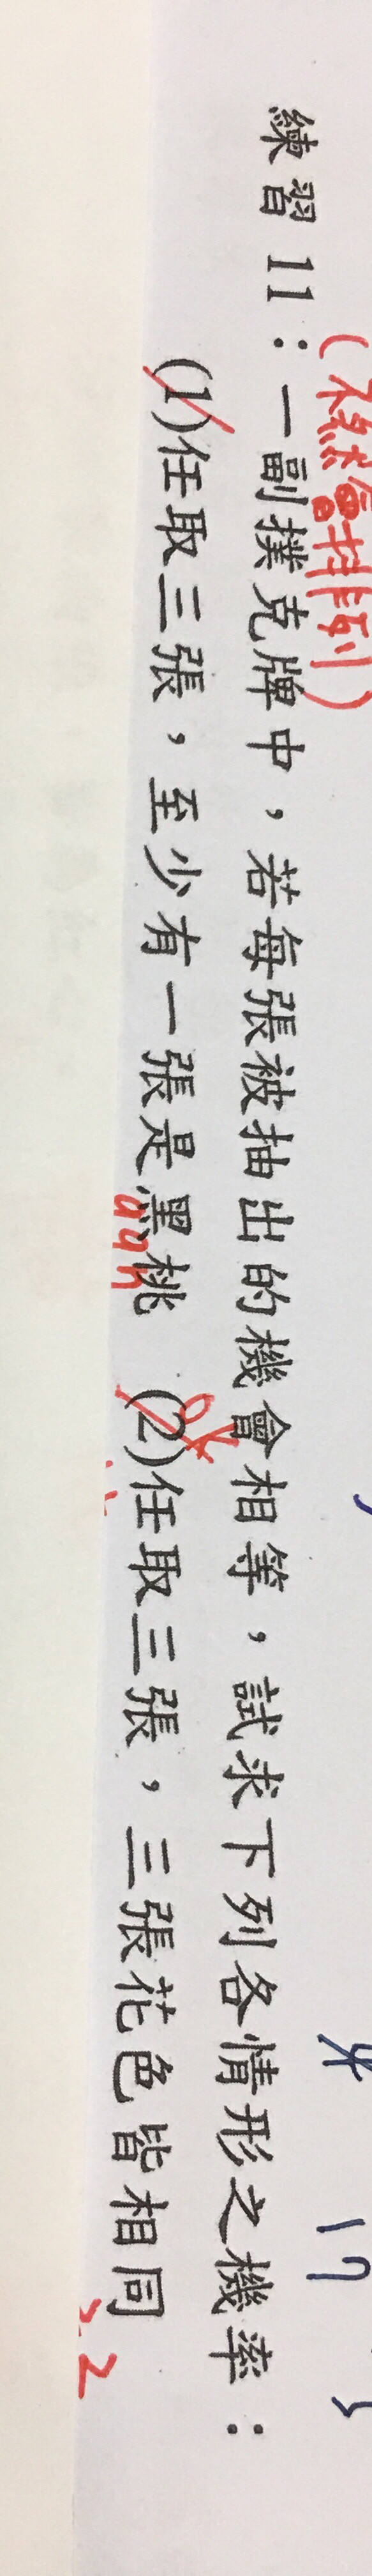 練習 11：一副撲克牌中，若每張被抽出的機會相等，試求下列各情形之機率：
(1)任取三張，至少有一張是黑桃 (2)任取三張，三張花色皆相同